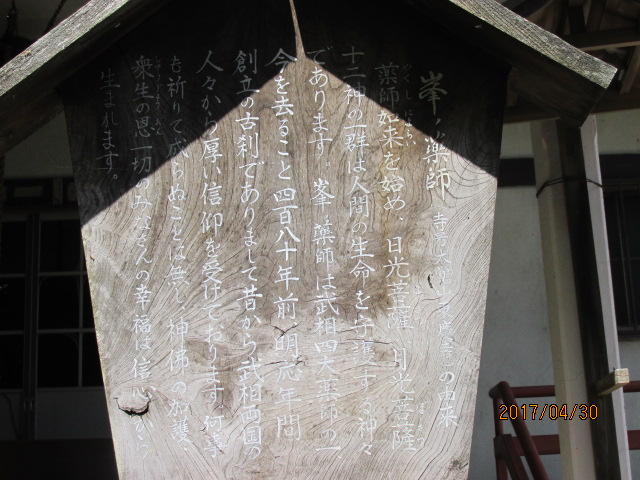 峯ノ薬師 の由来
やくし
薬師如来を始め、日光菩薩、月光菩薩
十二神の一群は人間の生命を守護する神々
であります。峯ノ薬師は武相四大薬師の一
今を去ること四百八十年前明応年間
創立の古刹でありまして昔から武相両国の
人々から厚い信仰を受けております。何事
も祈りて成らぬことは無し神佛の加護、
衆生の恩一切のみなさんの幸福は信心から
生まれます。
2017/04/30